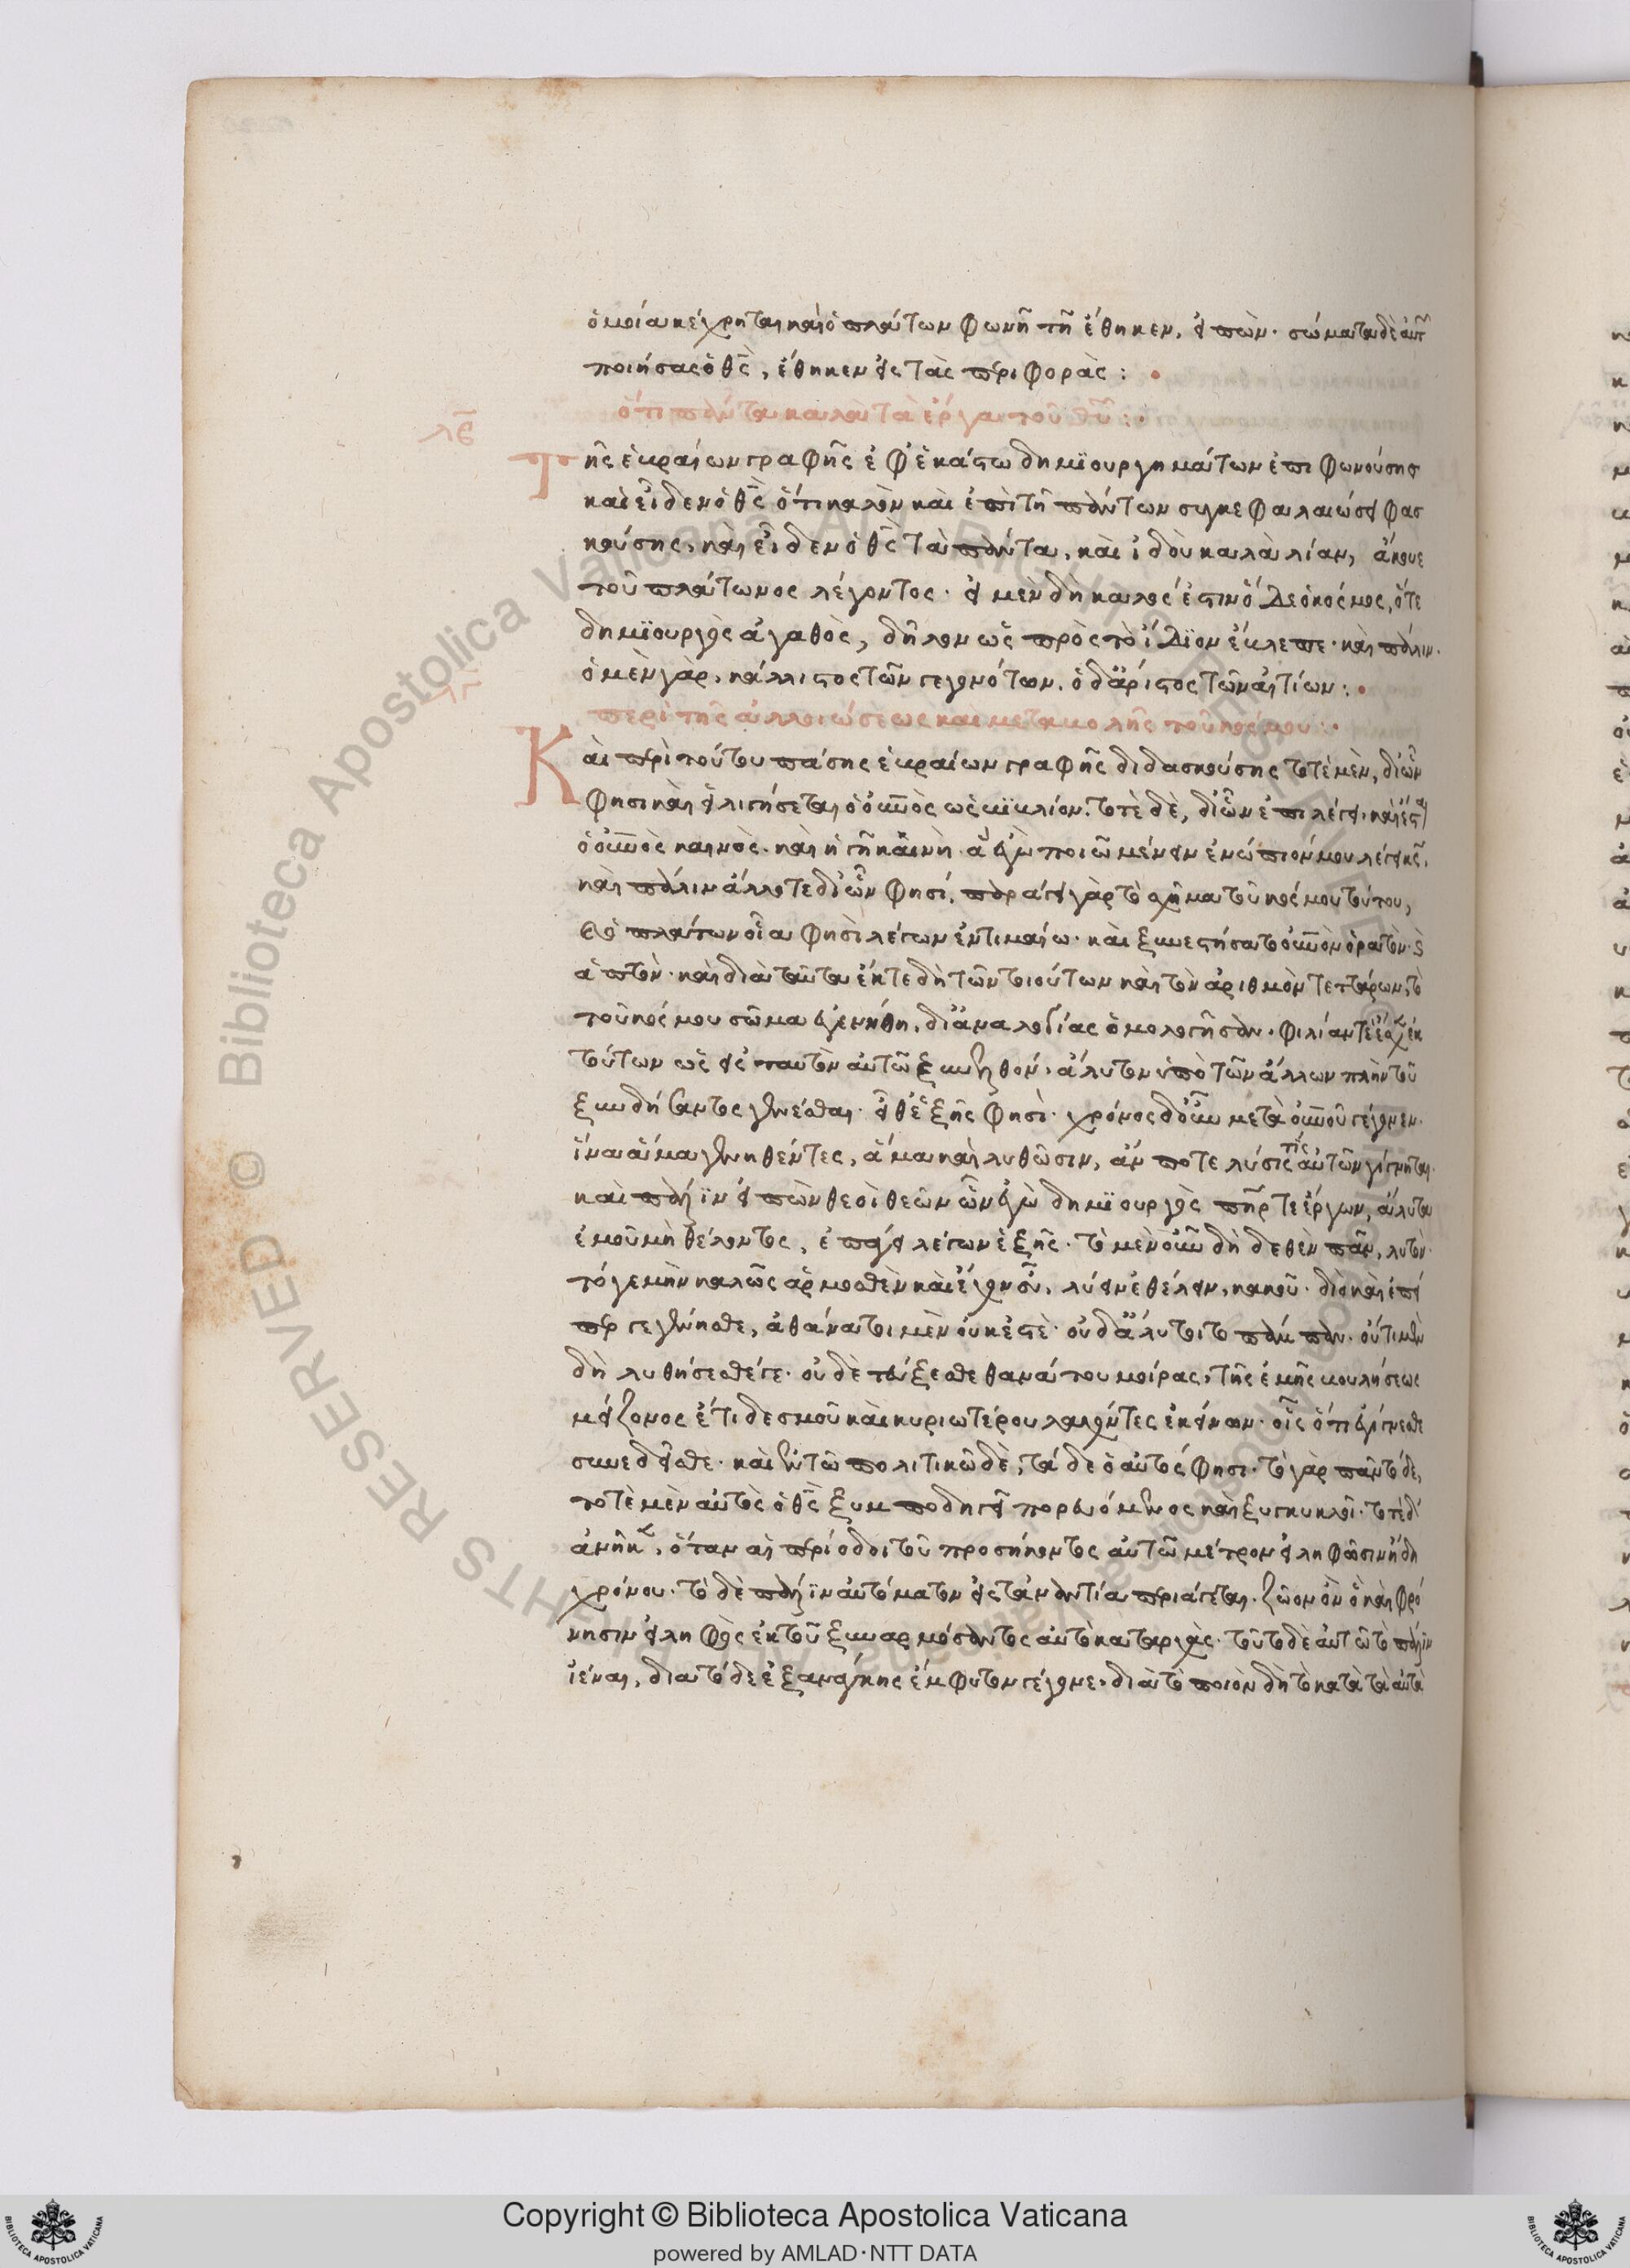 ὁμοία κέχρηται καὶ ὁ πλάτων φωνῆ τῆ ἔθηκεν, εἰπὼν· σώματα δὲ αὐτῶν
ποιήσας ὁ θς, ἔθηκεν εἰς τὰς περιφοράς:
ὅτι πάντα καλὰ τὰ ἔργα τοῦ θυ:
λε
Τῆς ἑβραίων γραφῆς ἐφ' ἑκάστω δημϊουργημάτων ἐπιφωνούσης
καὶ εἶδεν ὁ θς ὅτι καλὸν καὶ ἐπὶ τῆ πάντων συγκεφαλαιώσει φασ
κούσης, καὶ εἶδεν ὁ θς τὰ πάντα, καὶ ἰδοὺ καλὰ λίαν, ἄκουε
τοῦ πλάτωνος λέγοντος· εἰ μὲν δὴ καλός ἐστιν ὅδε ὁ κόσμος, ὅτε
δημϊουργὸς ἀγαθὸς, δῆλον ὡς πρὸς τὸ ἀΐδϊον ἔβλεπε· καὶ πάλιν·
ὁ μὲν γὰρ, κάλλιστος τῶν γεγονότων. ὁ δ' ἄριστος τῶν αἰτίων:
λς
περὶ τῆς ἀλλοιώσεως καὶ μεταβολῆς τοῦ κόσμου:
Καὶ περὶ τούτου πάσης ἑβραίων γραφῆς διδασκούσης τοτὲ μὲν, δι' ὧν
φησι καὶ ἑλιγήσεται ὁ οὐνος ὡς βιβλίον. τοτὲ δὲ, δι' ὧν ἐπιλέγει. καὶ ἔσται
ὁ οὐνος καινὸς. καὶ ἡ γῆ καινὴ ἃ ἐγὼ ποιῶ μένειν ἐνώπιόν μου λέγει κς.
καὶ πάλιν ἄλλοτε δι' ὧν φησί. παράγει γὰρ τὸ σχῆμα τοῦ κόσμου τούτου,
ὁ πλάτων οἷα φησὶ λέγων ἐν τιμαίω· καὶ ξυνεστήσατο οὐνον ὁρατὸν καὶ
ἁπτὸν· καὶ διὰ ταῦτα ἔκ τε δὴ τῶν τοιούτων καὶ τὸν ἀριθμὸν τεττάρων, τὸ
τοῦ κόσμου σῶμα ἐγεννήθη, δι' ἀναλογίας ὁμολογῆσαν. φιλίαν τε ἔσχεν ἐκ
τούτων ὡς εἰς ταυτὸν αὐτῶ ξυνελθόν, ἄλυτον ὑπὸ τῶν ἄλλων πλὴν τοῦ
ξυνδήσαντος γενέσθαι. εἶθ' ἑξῆς φησὶ. χρόνος δ' οὖν μετὰ οὐνου γέγονεν.
ἵνα ἅμα γεννηθέντες, ἅμα καὶ λυθῶσιν, ἄν ποτε λύσις τίς αὐτῶν γίγνηται.
καὶ πάλϊν εἰπὼν θεοὶ θεῶν ὧν ἐγὼ δημϊουργὸς πηρ τε ἔργων, ἄλυτα
ἐμοῦ μὴ θέλοντος, ἐπάγει λέγων ἑξῆς. τὸ μὲν οὖν δὴ δεθὲν πᾶν, λυτόν.
τό γε μὴν καλῶς ἁρμοσθὲν καὶ ἔχον εὖ, λύειν ἐθέλειν, κακοῦ. διὸ καὶ ἐπεί
περ γεγένησθε, ἀθάνατοι μὲν οὐκ ἐστὲ. οὐδ' ἄλυτοι τὸ πάμπαν. οὔτι μὲν
δὴ λυθήσεσθέ γε. οὐδὲ τεύξεσθε θανάτου μοίρας, τῆς ἐμῆς βουλήσεως
μείζονος ἔτι δεσμοῦ καὶ κυριωτέρου λαχόντες ἐκείνων. οἷς ὅτ' ἐγίγνεσθε
συνεδεῖσθε. καὶ ἐν τῶ πολιτικῶ δὲ, τάδε ὁ αὐτός φησι. τὸ γὰρ πᾶν τόδε,
τοτὲ μὲν αὐτὸς ὁ θς ξυμποδηγεῖ πορευόμενος καὶ ξυγκυκλεῖ. τοτὲ δ'
ἀνῆκεν, ὅταν αἱ περίοδοι τοῦ προσήκοντος αὐτῶ μέτρον εἰληφῶσιν ἤδη
χρόνου. τὸ δὲ πάλϊν αὐτόματον εἰς τἀναντία περιάγεται. ζῶον ὂν ὃ καὶ φρό
νησιν εἰληφὸς ἐκ τοῦ ξυναρμόσαντος αὐτὸ κατ' ἀρχὰς. τοῦτο δὲ αὐτῶ τὸ πάλϊν
ἰέναι, διὰ τόδε ἐξ ἀνάγκης ἔμφυτον γέγονε, διὰ τὸ ποιὸν δὴ τὸ κατὰ τὰ αὐτὰ
Copyright © Biblioteca Apostolica Vaticana
powered by AMLAD·NTT DATA